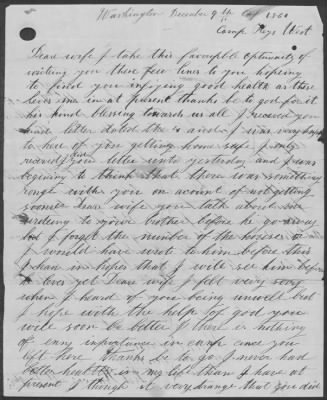 Washington December 9th 1861
Camp Keys West
Dear wife I take this favorable oppertunity of
writing you these few lines to you hopeing
to find you injoying good health as these
leves me in at parent thanks be to god for it
his kind blessing towards us all I received your
kind letter dated the and I was very happy
to here of you getting home safe I only
received your letter unto yesterday and I was
begining to think that there was something
ronge with you on acount of not getting
sooner Dear wife you talk about me
writeing to your brother before he go away
but I forget the number of the horses or
I would have wrote to him before this
I have in hopes that I will see him before
he leves yet Dear wife I felt very sorry
when I heard of you being unwell but
I hope with the help of god you
will soon be better I there is nothing
of eny importance in camp cince you
left here thanks be to go I never had
better health in my life than I have at
present I though it very strange that you did